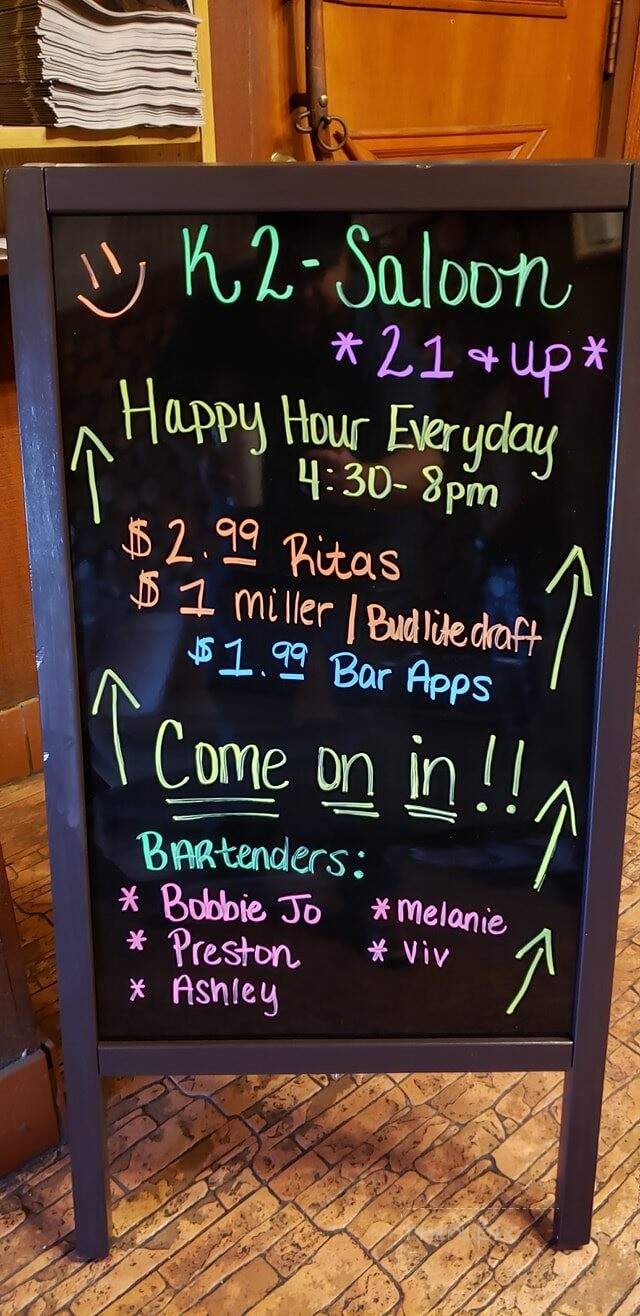 K2-Saloon
*21 & up*
Happy Hour Everyday
4:30-8pm
$2.99 Ritas
$1 miller / Bud lite draft
$1.99 Bar Apps
Come on in!!
BARtenders:
* Bobbie Jo * Melanie
* Preston * Viv
* Ashley